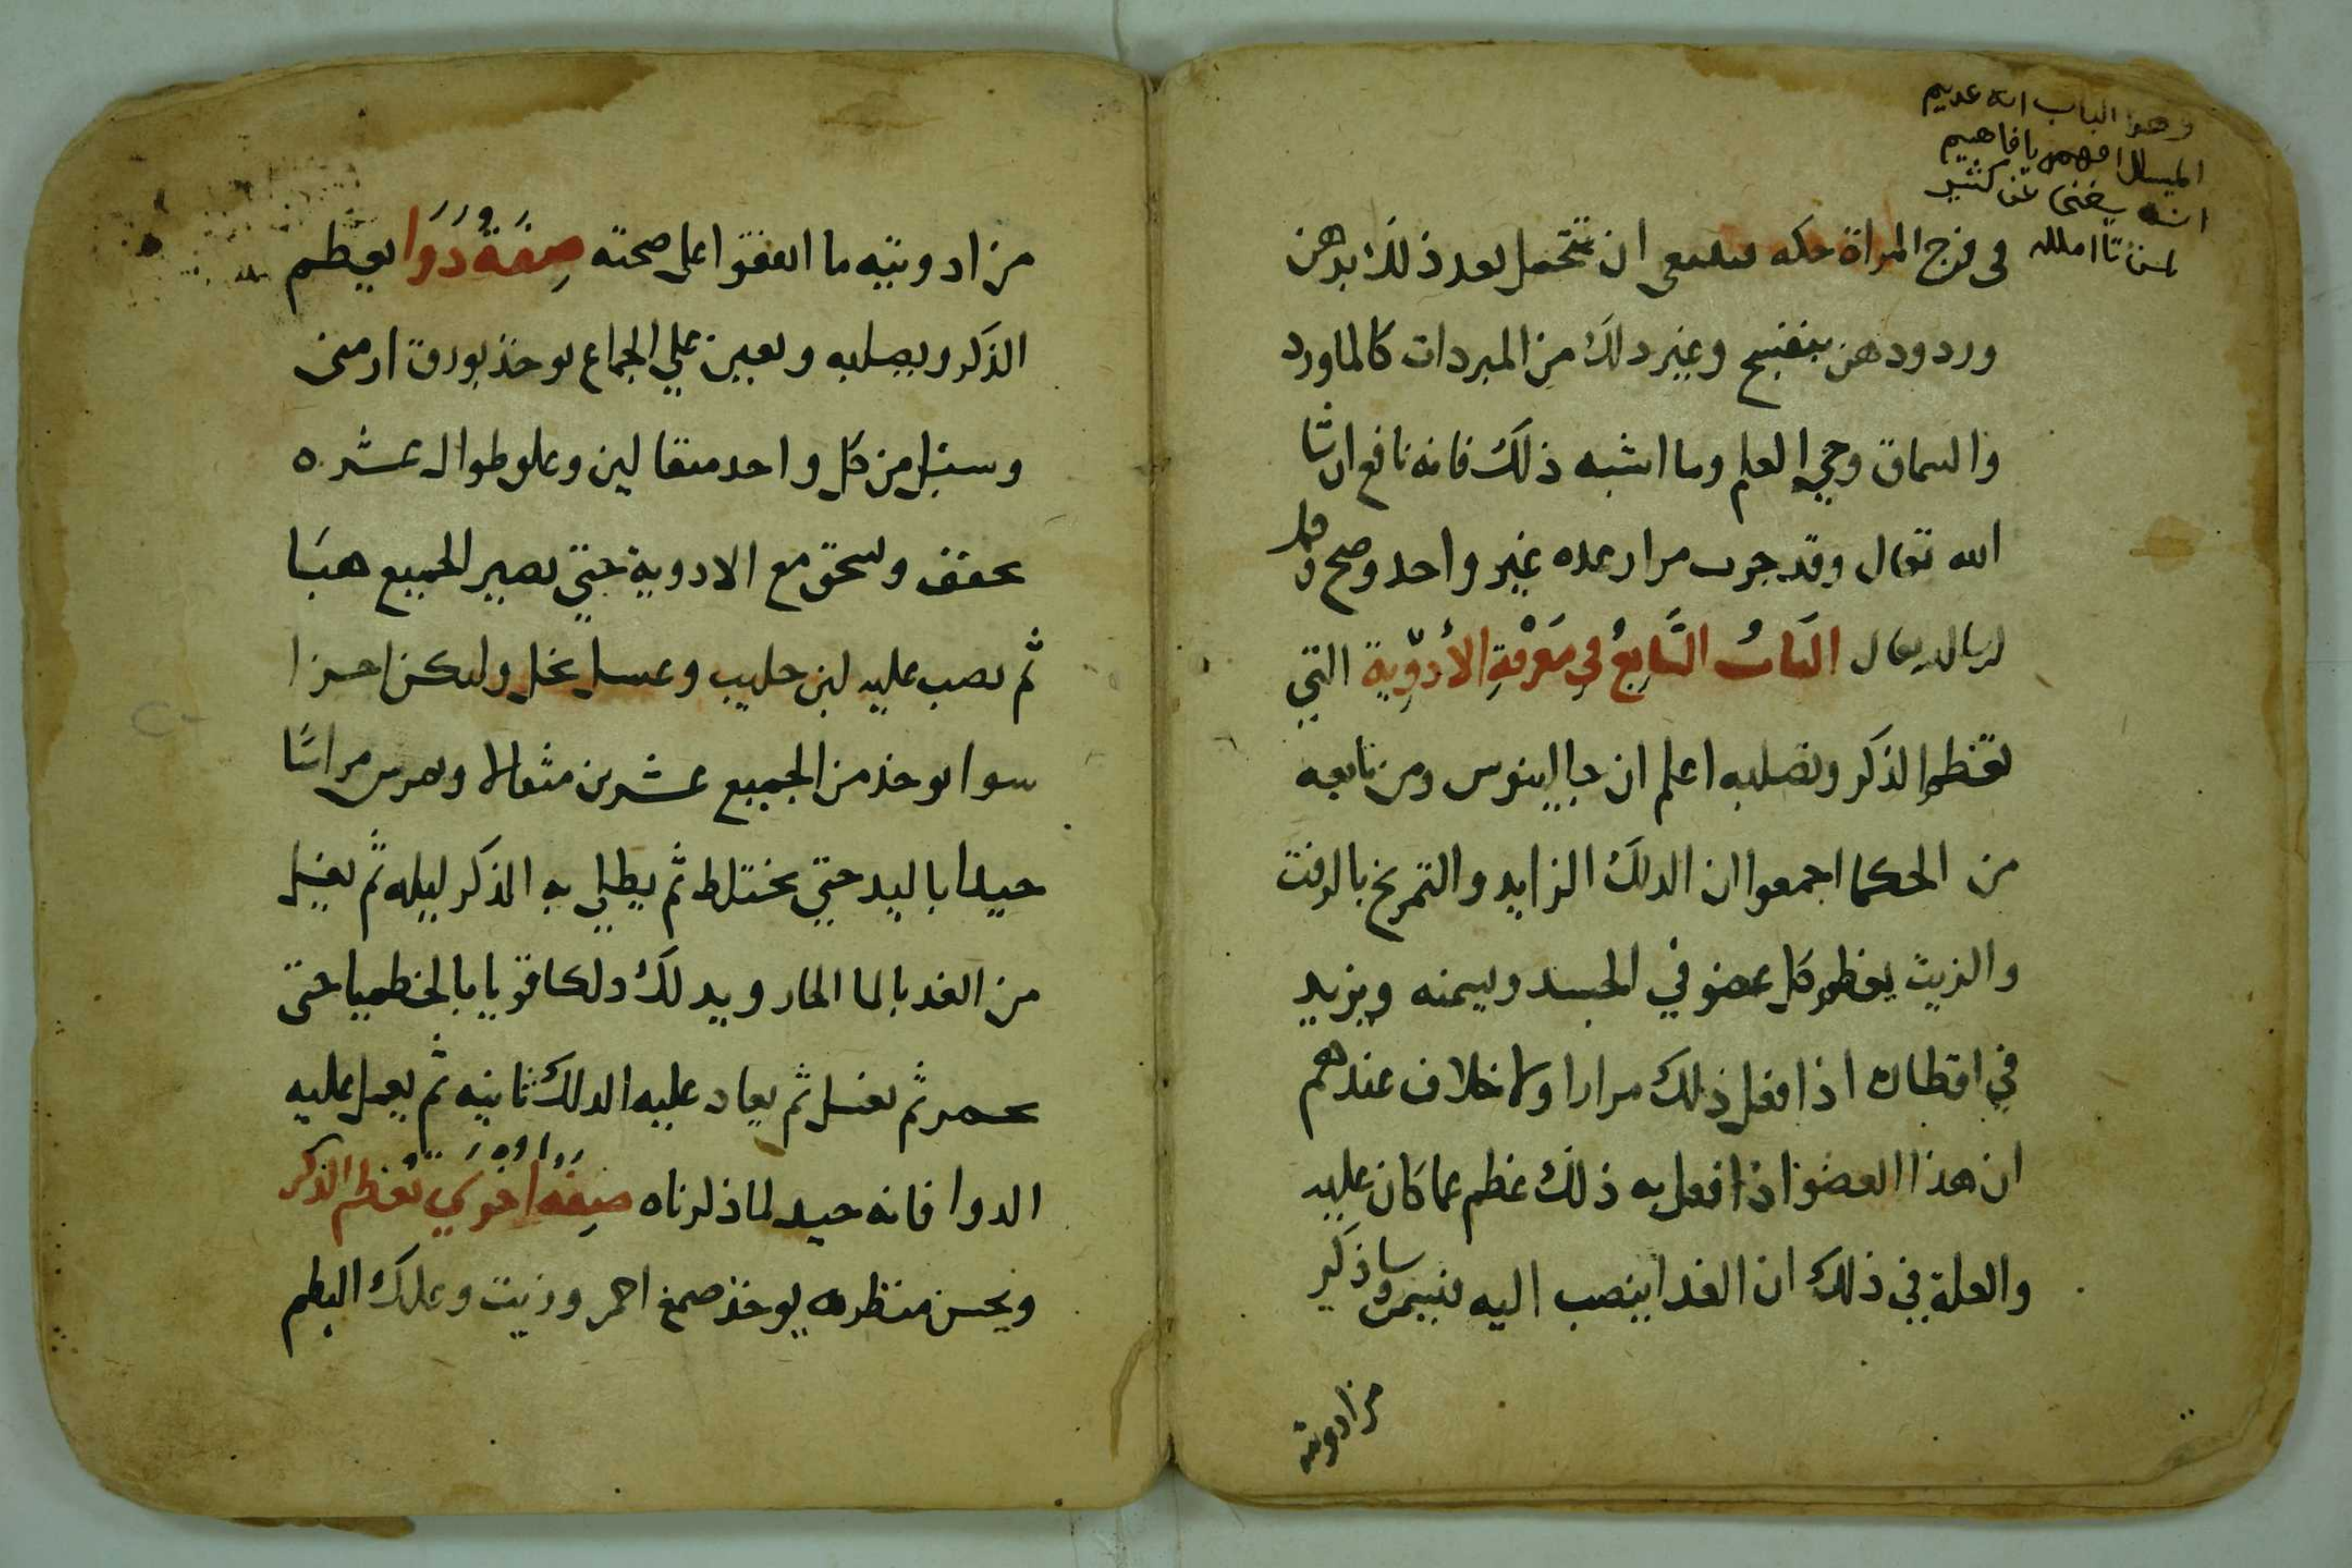 وهو الباب انه عديم
المسال افهم يا فاهيم
انه يغنى عن كثير
لمن تاامله
فى فرج المراة حكه ان تتحمل بعد ذلك بدهن
ورد ودهن بنفسج وغير دلك من المبردات كالماورد
والسماق وحي العلم وما اشبه ذلك فانه نافع ان شا
الله تعالى وقد جرب مرار عده غير واحد وصح
البَابُ السَّابِعُ فِي مَعْرِفَةِ الأدْوِيةِ التي
تعظم الذكر وتصلبه اعلم ان جالينوس ومن تابعه
من الحكما اجمعوا ان الدلك الزايد والتمريخ بالزفت
والزيت يعظم كل عضو في الجسد ويسمنه ويزيد
في اقطاره اذا فعل ذلك مرارا ولا خلاف عندهم
ان هذا العضو اذا فعل به ذلك عظم عما كان عليه
والعلة في ذلك ان الغدا ينصب اليه فينمو وساذكر
من ادويته
من ادويته ما اتفقوا على صحته صِفَةُ دَوَا يعظم
الذكر ويصلبه ويعين علي الجماع يوخذ بورق ارمنى
وسنبل من كل واحد مثقالين وعلق طوال عشره
يجفف ويسحق مع الادوية حتي يصير الجميع هبَا
ثم يصب عليه لبن حليب وعسل نحل وليكن اجزا
سوا يوخذ من الجميع عشرين مثقالا ويمرس مراسًا
جيدا باليد حتي يختلط ثم يطلي به الذكر ليله ثم يغسل
من الغد بالما الحار ويدلك دلكا قويا بالخطميا حتى
يحمر ثم يغسل ثم يعاد عليه الدلك ثانيه ثم يعمل عليه
الدوا فانه جيد لما ذكرناه صِفَه اخري تعظم الذكر
ويحسن منظره يوخذ صمغ احمر وزيت وعلك البطم